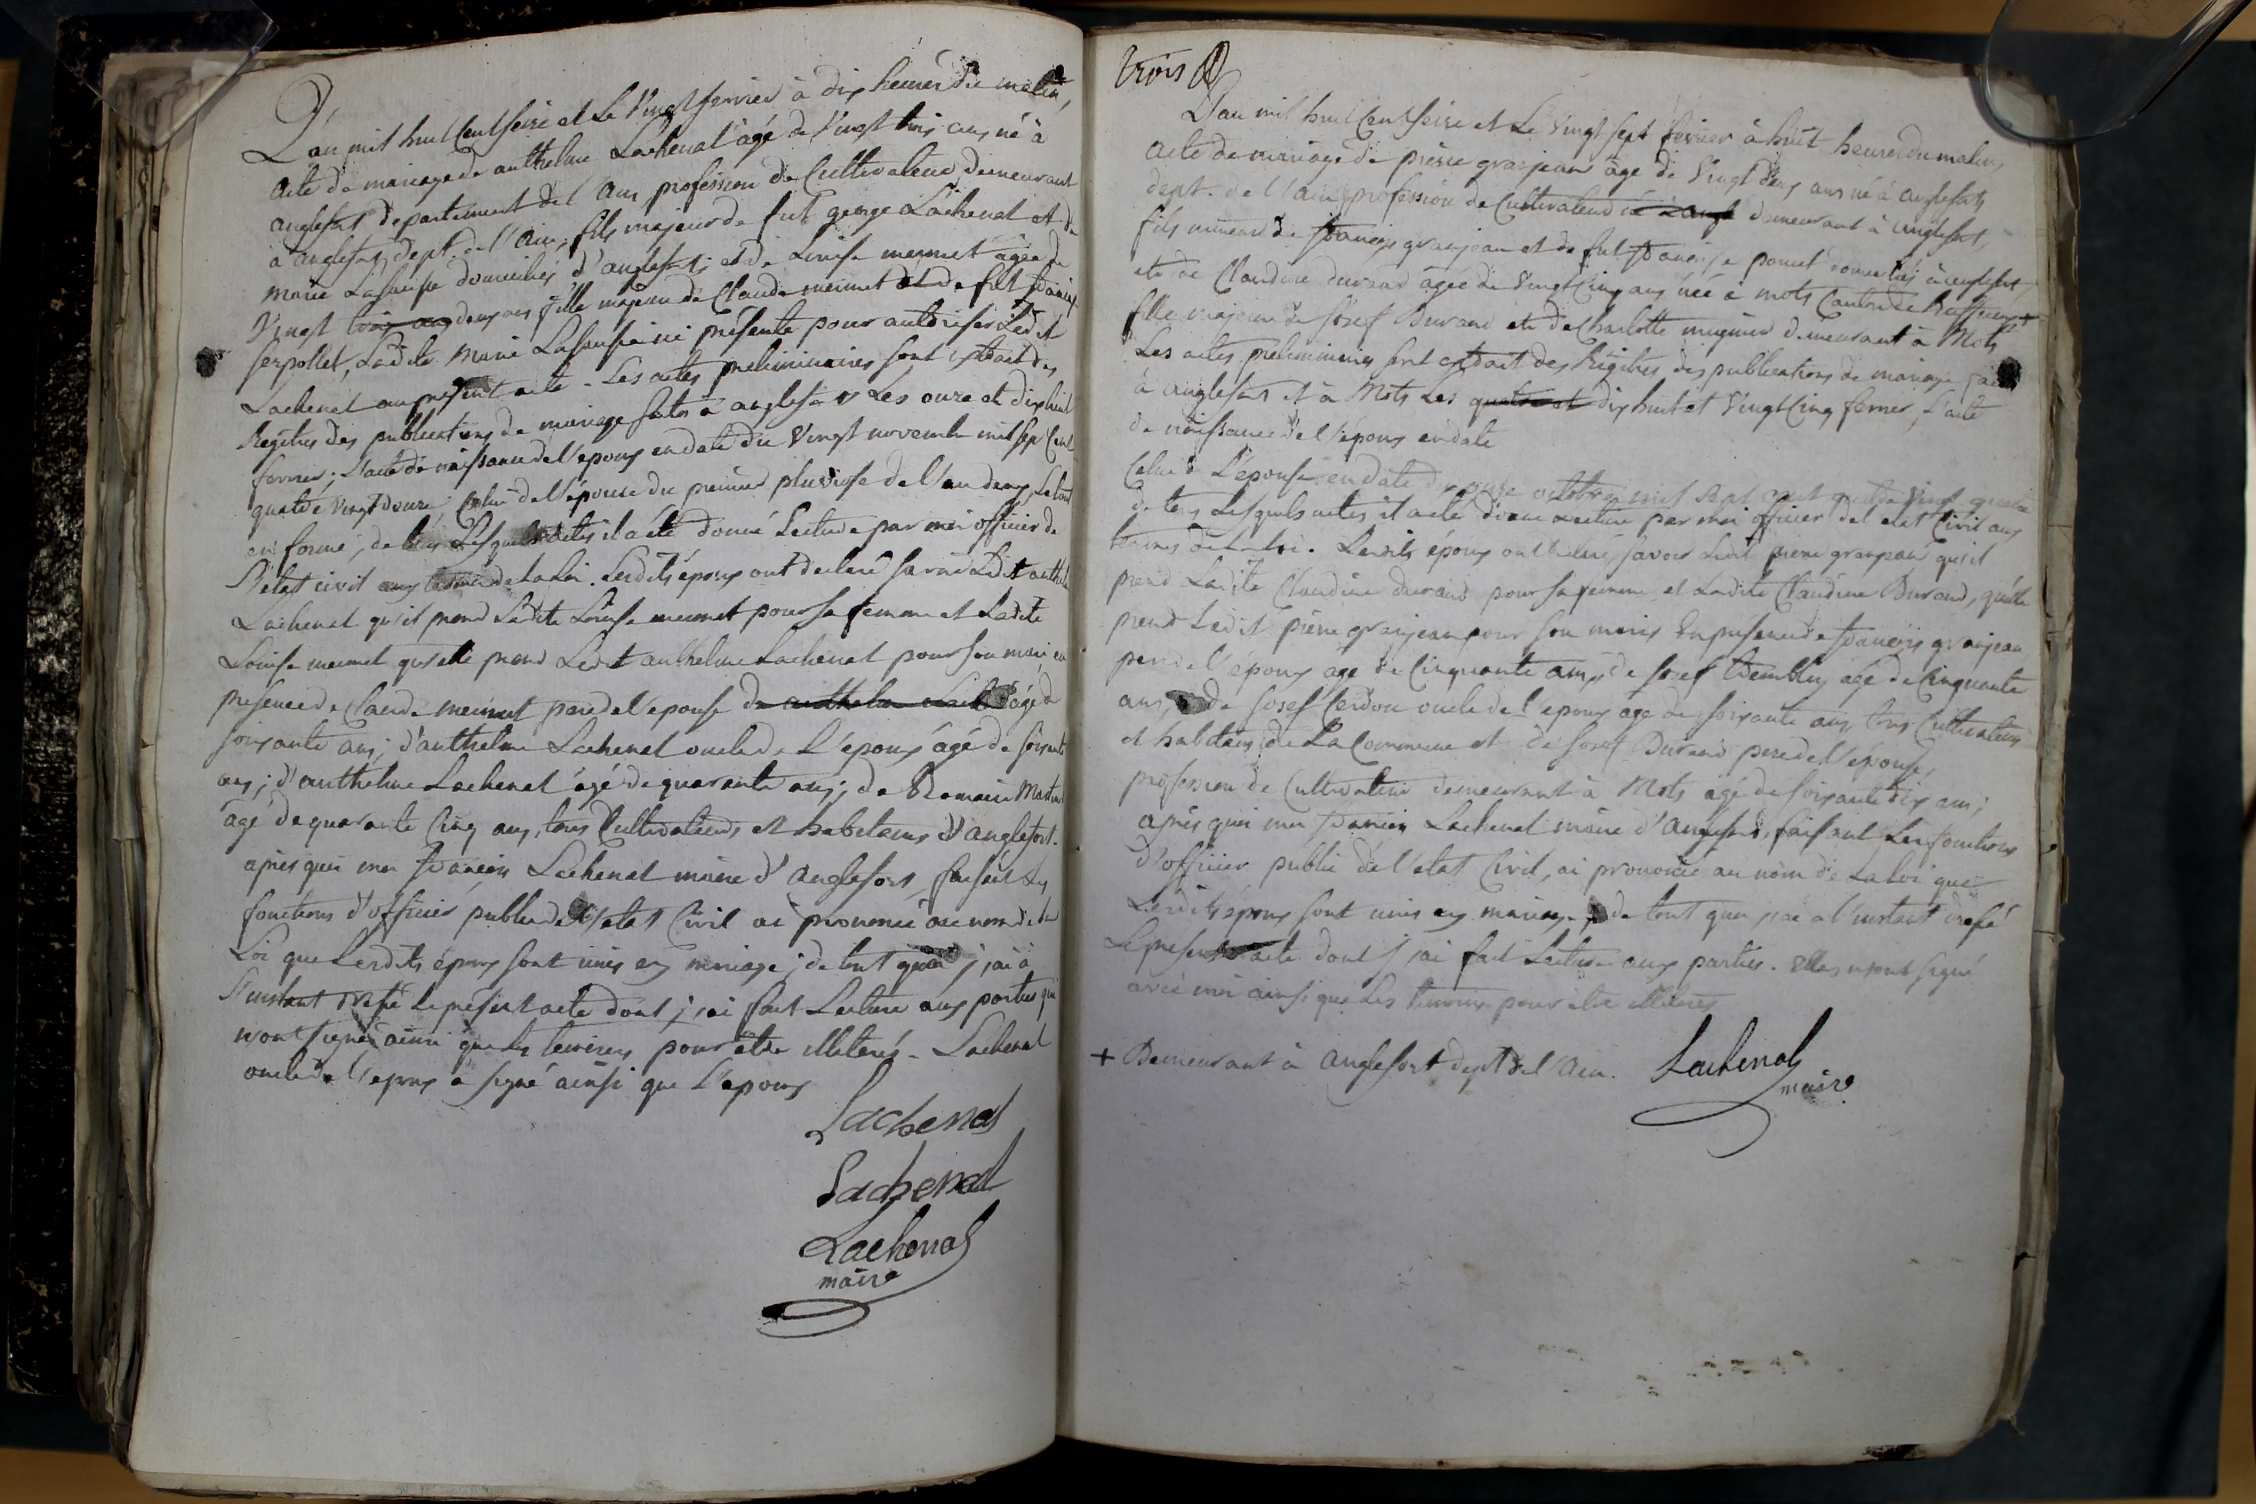 L'an mil huit Cent seize et le Vingt fevrier à dix heures du matin,
acte de mariage de anthelme Lachenal âgé de Vingt trois ans né à
anglefort departement de l'ain profession de Cultivateur demeurant
à anglefort, dept. de l'ain, fils majeur de fut george Lachenal et de
marie Lasausse domiciliés d'anglefort; et de Louise mermet âgée de
Vingt trois ans deux ans fille majeure de Claude mermet et de fut
serpollet, Ladite Marie Lasausse ici présente pour autoriser Ledit
Lachenal au present acte - Les actes preliminaires sont extrait des
Registres des publications de mariage faites à anglefort Les onze et dix huit
fevrier; L'acte de naissance de l'epoux en date du Vingt novembre mil sept Cent
quatre Vingt douze Celui de l'épouse du premier pluviose de l'an deux, Le tout
en forme, de tous Lesquels actes il a été donné Lecture par moi officier de
l'etat civil aux termes de la Loi. Lesdits époux ont declaré savoir Ledit anthelme
Lachenal qu'il prend Ladite Louise mermet pour sa femme et Ladite
Louise mermet qu'elle prend Ledit anthelme Lachenal pour son mari en
presence de Claude mermet pere de l'epouse de anthelme âgé de
soixante ans; d'anthelme Lachenal oncle de L'epoux âgé de soixante
ans; d'anthelme Lachenal âgé de quarante ans; de Romain
âgé de quarante Cinq ans, tous Cultivateurs et habitans d'anglefort.
après quoi moi francois Lachenal maire d'anglefort faisant Les
fonctions d'officier public de l'etat Civil ai prononcé au nom de la
Loi que Lesdits époux sont unis en mariage; de tout quoi j'ai à
l'instant dressé le présent acte dont j'ai fait Lecture aux parties qui
n'ont signé ainsi que les temoins pour etre illiterés - Lachenal
oncle de l'epoux a signé ainsi que L'epoux
Lachenal
Lachenal
Lachenal
maire
trois
L'an mil huit Cent seize et Le Vingt sept fevrier à huit heures du matin,
acte de mariage de pierre granjean âgé de Vingt deux ans né à anglefort
dept. de l'ain, profession de Cultivateur né à angle demeurant à anglefort,
fils mineur de francois granjean et de fut francoise domiciliés à anglefort,
et de Claudine durand âgée de Vingt Cinq ans née à mots Canton de Ruffieux +
fille majeure de Josef Durand et de Charlotte mugnier demeurant à Mots
Les actes preliminaires sont extrait des Régistres des publications de mariage faites
à anglefort et à Mots Les quatre et dix huit et Vingt Cinq fevrier, L'acte
de naissance de l'epoux en date
Celui de L'épouse en date du onze octobre mil sept cent quatre Vingt
de tous Lesquels actes il a été donné Lecture par moi officier de l'etat Civil aux
termes de la Loi. Lesdits époux ont declaré savoir Ledit pierre granjean qu'il
prend Ladite Claudine durand pour sa femme et Ladite Claudine Durand, qu'elle
prend Ledit pierre granjean pour son mari En presence de francois granjean
pere de l'époux âgé de Cinquante ans, de Josef âgé de Cinquante
ans, de Josef Cerdon oncle de l'epoux âgé de soixante ans, tous Cultivateurs
et habitans de La Commune et de Josef Durand pere de l'épouse,
profession de Cultivateur demeurant à Mots âgé de soixante dix ans;
après quoi moi francois Lachenal maire d'anglefort, faisant Les fonctions
d'officier public de l'etat Civil, ai prononcé au nom de La Loi que
Lesdits époux sont unis en mariage, de tout quoi j'ai à l'instant dressé
Le present acte dont j'ai fait Lecture aux parties. Elles n'ont signé
avec moi ainsi que Les temoins pour etre illiterés
+ Demeurant à anglefort dept de l'ain.
Lachenal
maire